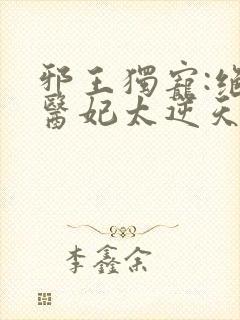 邪王獨寵:絕
醫妃太逆天
李鑫余